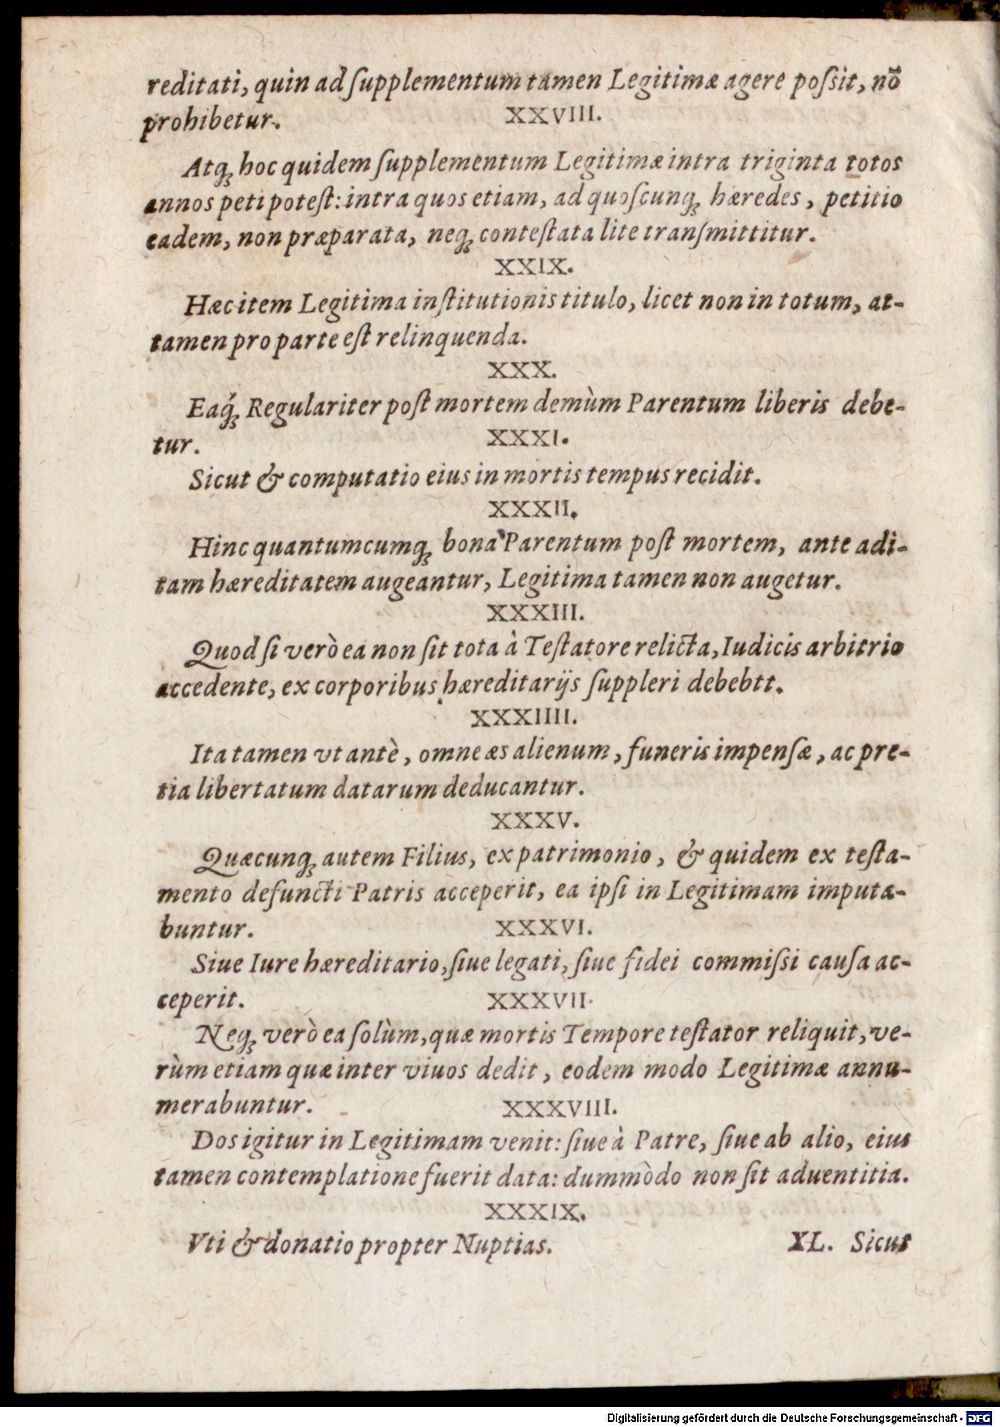 reditati, quin ad ſupplementum tamen Legitimæ agere poſsit, nō
prohibetur. XXVIII.
Atqꝫ hoc quidem ſupplementum Legitimæ intra triginta totos
annos peti poteſt: intra quos etiam, ad quoſcunqꝫ hæredes, petitio
eadem, non præparata, neqꝫ conteſtata lite tranſmittitur.
XXIX.
Hæc item Legitima inſtitutionis titulo, licet non in totum, at-
tamen pro parte eſt relinquenda.
XXX.
Eaq́ꝫ Regulariter poſt mortem demùm Parentum liberis debe-
tur. XXXI.
Sicut & computatio eius in mortis tempus recidit.
XXXII.
Hinc quantumcumqꝫ bona Parentum poſt mortem, ante adi-
tam hæreditatem augeantur, Legitima tamen non augetur.
XXXIII.
Quod ſi verò ea non ſit tota à Teſtatore relicta, Iudicis arbitrio
accedente, ex corporibus hæreditarijs ſuppleri debebtt.
XXXIIII.
Ita tamen vt antè, omne æs alienum, funeris impenſæ, ac pre-
tia libertatum datarum deducantur.
XXXV.
Quæcunqꝫ autem Filius, ex patrimonio, & quidem ex teſta-
mento defuncti Patris acceperit, ea ipſi in Legitimam imputa-
buntur. XXXVI.
Siue Iure hæreditario, ſiue legati, ſiue fidei commiſsi cauſa ac-
ceperit. XXXVII.
Neqꝫ verò ea ſolùm, quæ mortis Tempore teſtator reliquit, ve-
rùm etiam quæ inter viuos dedit, eodem modo Legitimæ annu-
merabuntur. XXXVIII.
Dos igitur in Legitimam venit: ſiue à Patre, ſiue ab alio, eius
tamen contemplatione fuerit data: dummòdo non ſit aduentitia.
XXXIX.
Vti & donatio propter Nuptias. XL. Sicut
Digitalisierung gefördert durch die Deutsche Forschungsgemeinschaft - DFG